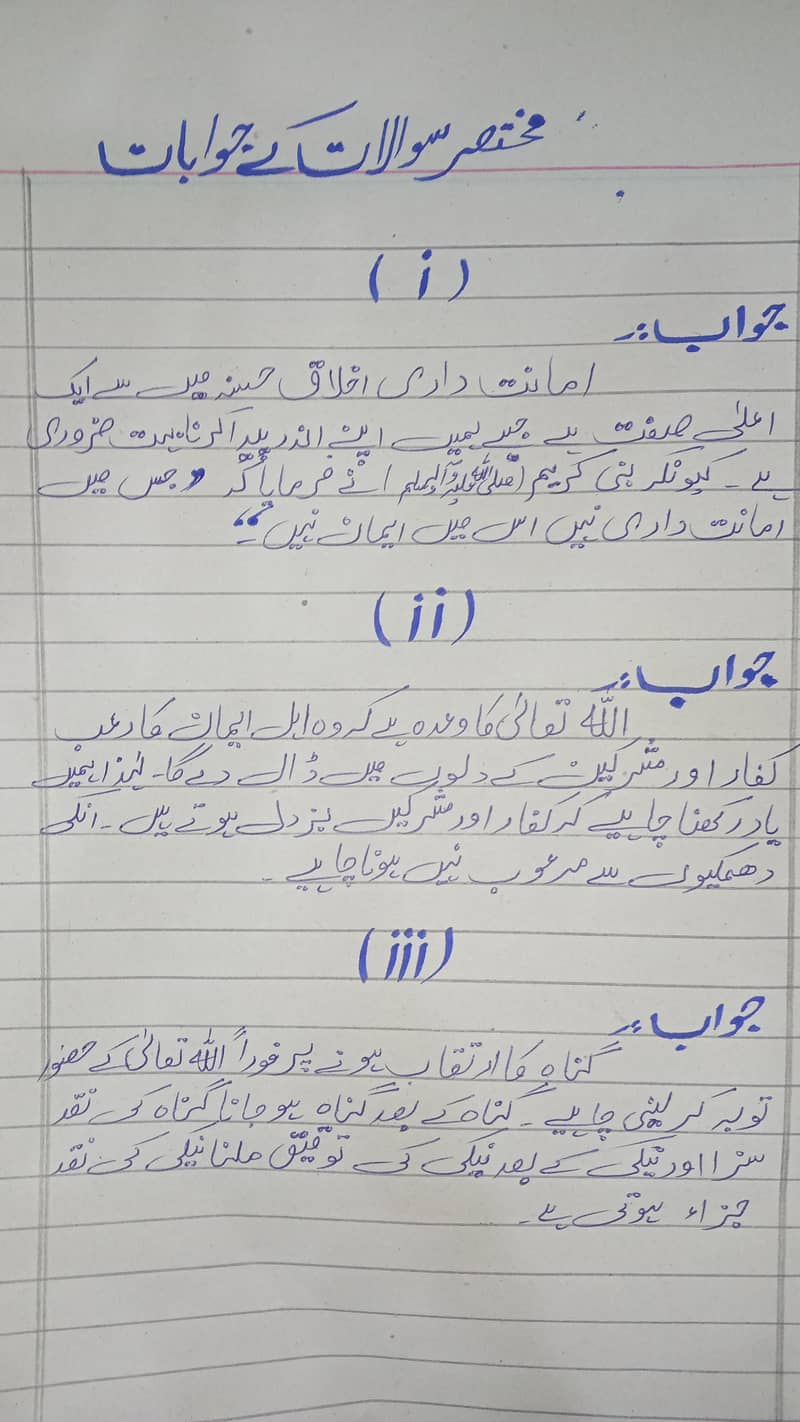 مختصر سوالات کے جوابات
(i)
جواب:۔
امانت داری اخلاق حسنہ میں سے ایک
اعلیٰ صفت ہے جسے ہمیں اپنے اندر پیدا کرنا بہت ضروری
ہے۔ کیونکہ نبی کریم (صلی اللہ علیہ وآلہ وسلم) نے فرمایا کہ "جس میں
امانت داری نہیں اس میں ایمان نہیں۔"
(ii)
جواب:۔
اللہ تعالیٰ کا وعدہ ہے کہ وہ اہل ایمان کا رعب
کفار اور مشرکین کے دلوں میں ڈال دے گا۔ لہٰذا ہمیں
یاد رکھنا چاہیے کہ کفار اور مشرکین بزدل ہوتے ہیں۔ انکی
دھمکیوں سے مرعوب نہیں ہونا چاہیے۔
(iii)
جواب:۔
گناہ کا ارتقاب ہونے پر فوراً اللہ تعالیٰ کے حضور
توبہ کر لینی چاہیے۔ گناہ کے بعد گناہ ہو جانا گناہ کی نقد
سزا اور نیکی کے بعد نیکی کی توفیق ملنا نیکی کی نقد
جزاء ہوتی ہے۔